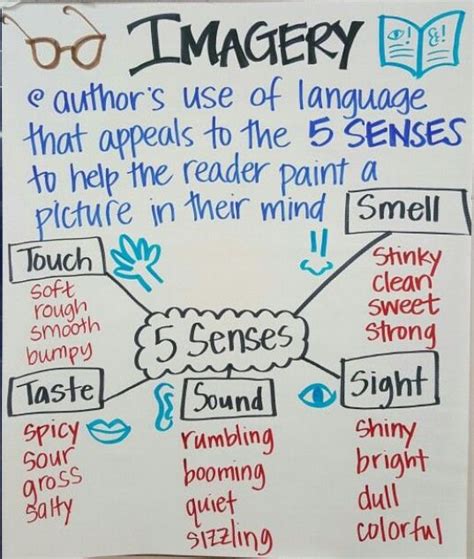 IMAGERY
author's use of language
that appeals to the 5 SENSES
to help the reader paint a
picture in their mind
Smell
Stinky
clean
sweet
strong
Touch
soft
rough
smooth
bumpy
5 Senses
Taste
spicy
sour
gross
salty
Sound
rumbling
booming
quiet
sizzling
Sight
shiny
bright
dull
colorful